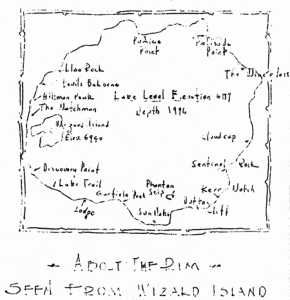 Pumice
Point
Palisade
Point
Llao Rock
Devils Backbone
The Wineglass
Hillman Peak
Lake Level Elevation
The Watchman
depth 1996
Wizard Island
Elev 6940
Cloudcap
Discovery Point
Sentinel Rock
Lake Trail
Garfield Peak
Phantom
Ship
Kerr Notch
Lodge
Dutton
Cliff
About The Rim
Seen From Wizard Island